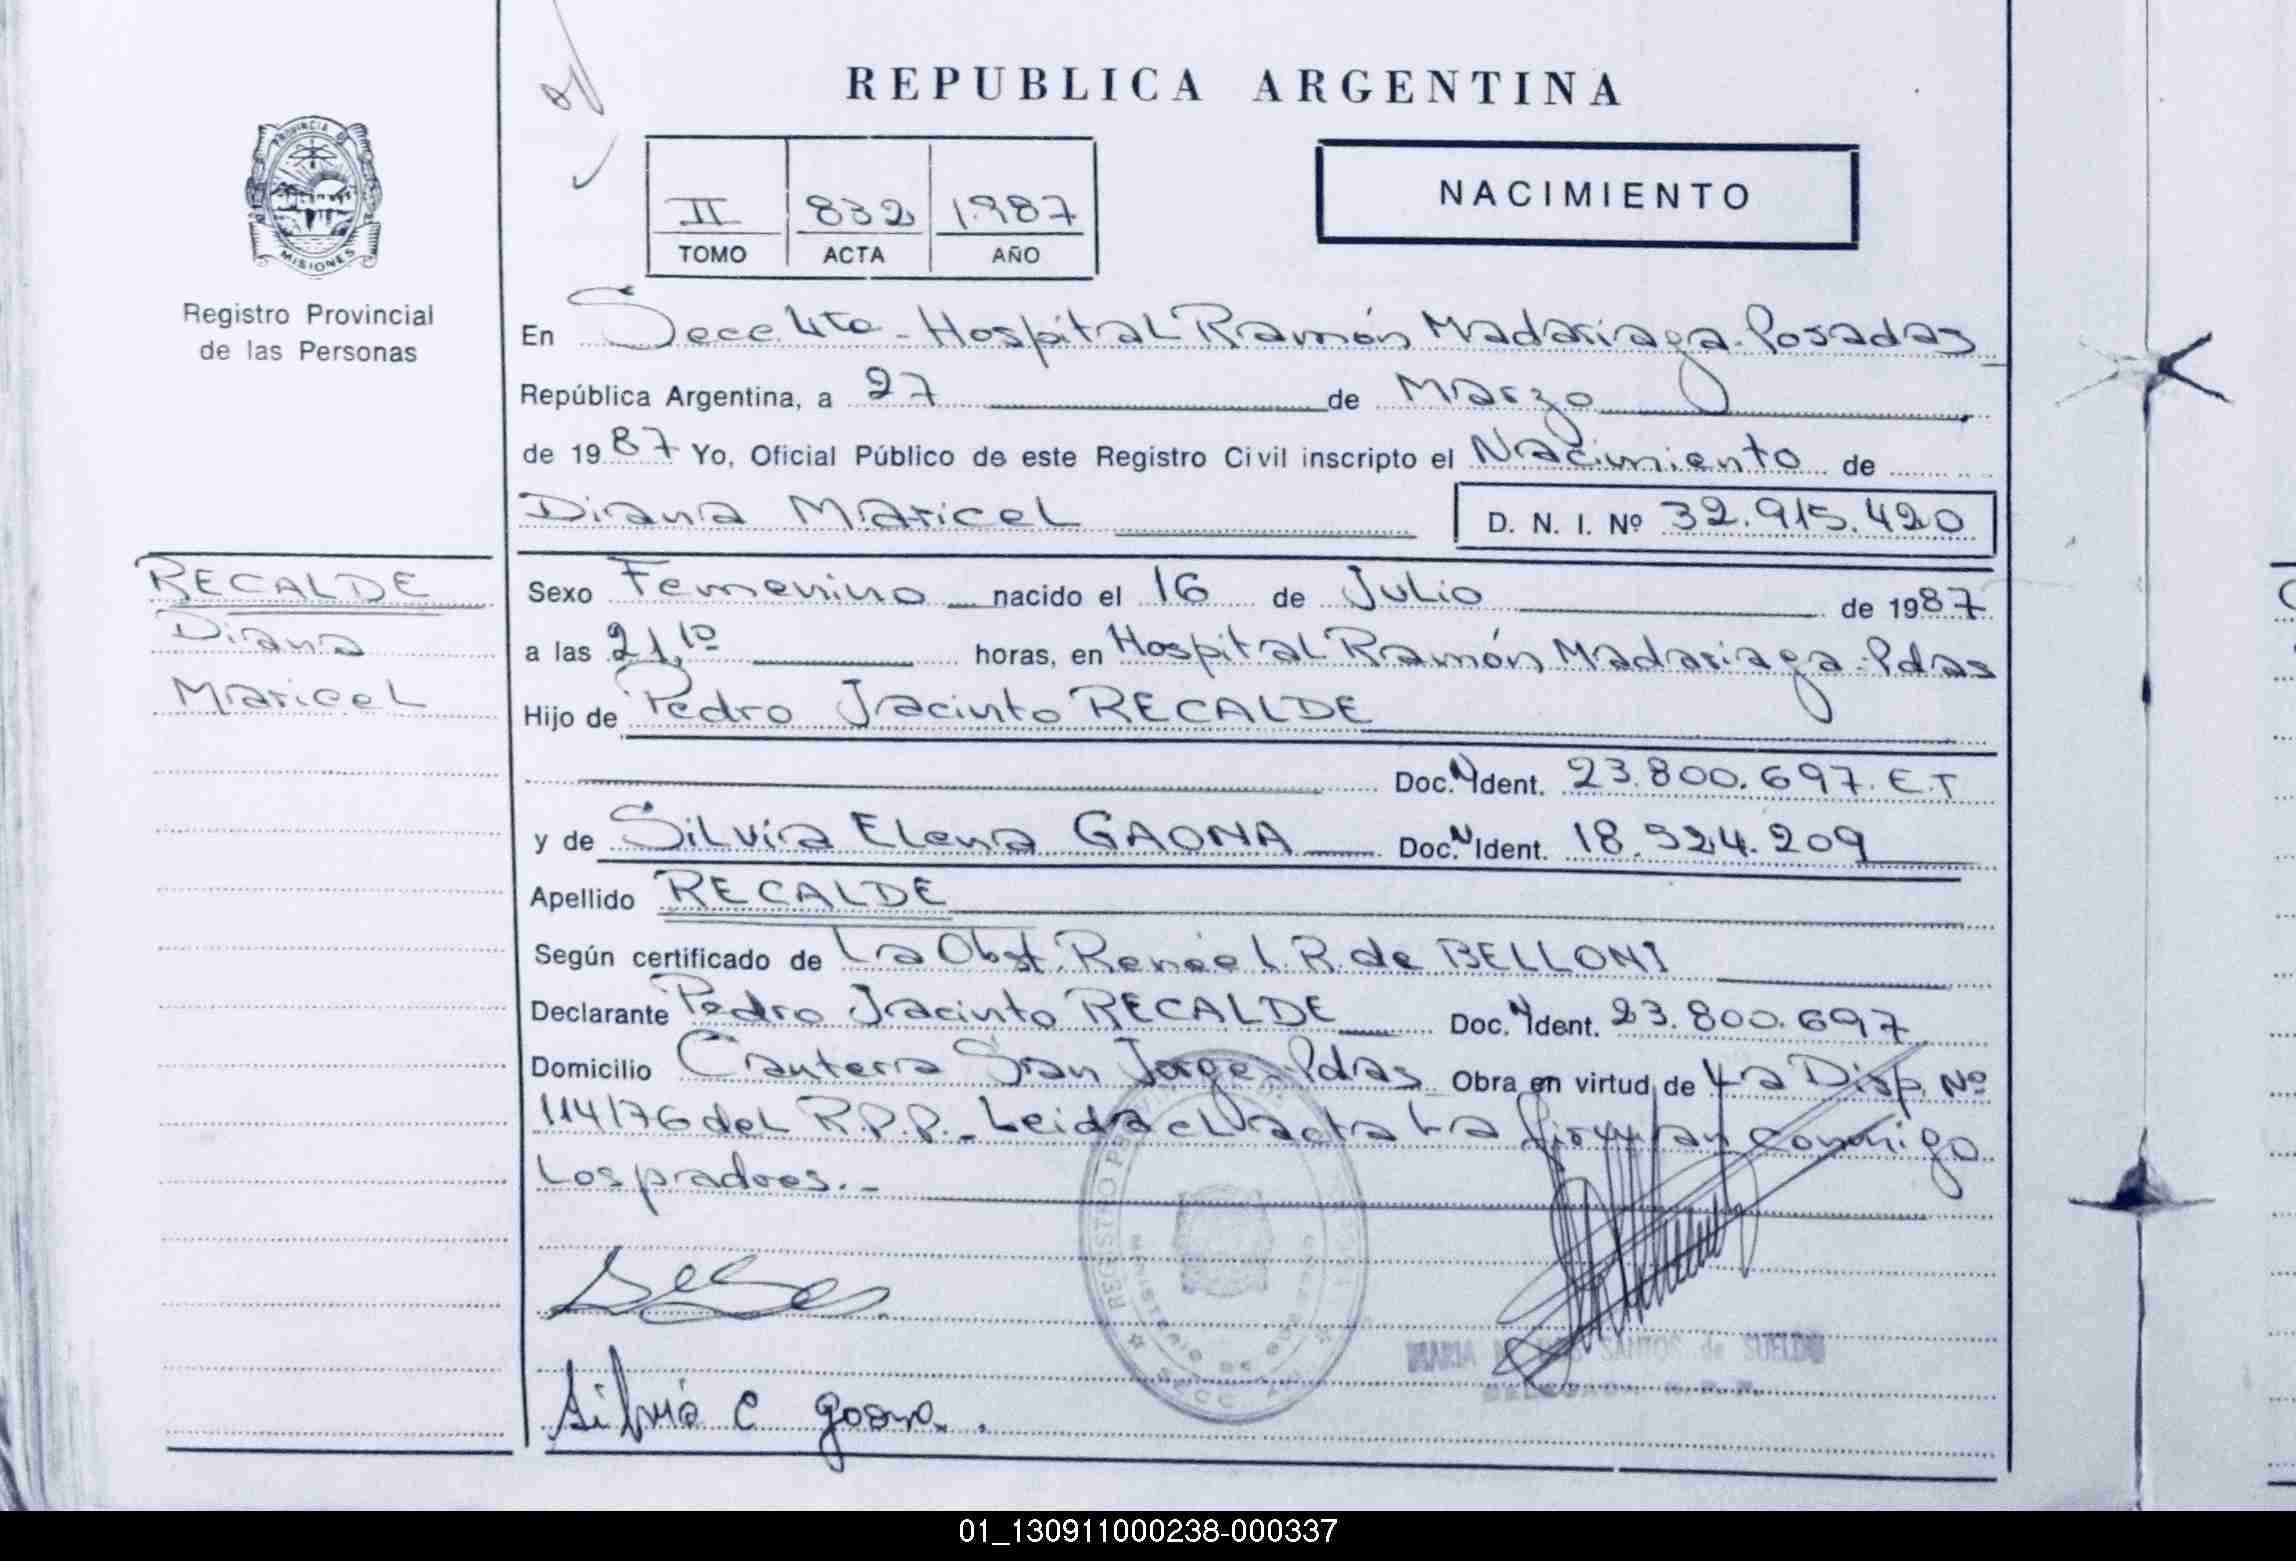 REPUBLICA ARGENTINA
PROVINCIA DE
MISIONES
Registro Provincial
de las Personas
II 832 1987
TOMO ACTA AÑO
NACIMIENTO
En Secc 4ta - Hospital Ramón Madariaga - Posadas
República Argentina, a 27 de Marzo
de 1987 Yo, Oficial Público de este Registro Civil inscripto el Nacimiento de
Diana Maricel D. N. I. Nº 32.915.420
RECALDE
Diana
Maricel
Sexo Femenino nacido el 16 de Julio de 1987
a las 21,10 horas, en Hospital Ramón Madariaga - Pdas
Hijo de Pedro Jacinto RECALDE
Doc. N Ident. 23.800.697. E.T
y de Silvia Elena GAONA Doc. N Ident. 18.524.209
Apellido RECALDE
Según certificado de La Obst. Renée L. R. de BELLONI
Declarante Pedro Jacinto RECALDE Doc. N Ident. 23.800.697
Domicilio Canterra San Jorge - Pdas Obra en virtud de La Disp. Nº
114/76 del R.P.P. - Leida el acta La firman conmigo
Los pradres. -
Silvia E gaona.
REGISTRO
MINISTERIO DE GOB
SECC
MARIA SANTOS de SUELDO
01_130911000238-000337